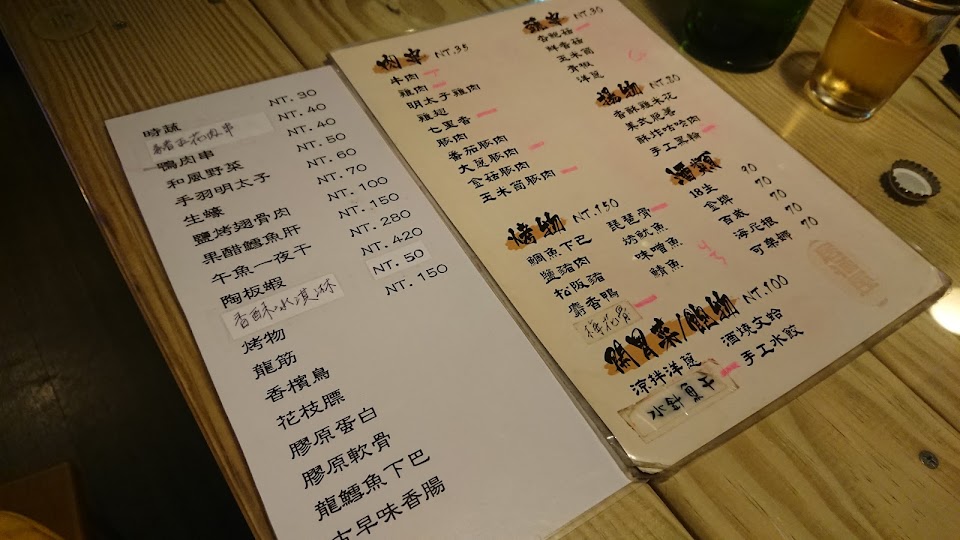 時蔬
鴨肉串
和風野菜
手羽明太子
生蠔
鹽烤翅骨肉
果醋鱈魚肝
午魚一夜干
陶板蝦
香酥冰淇淋
烤物
龍筋
香檳鳥
花枝膘
膠原蛋白
膠原軟骨
龍鱈魚下巴
古早味香腸
NT. 30
NT. 40
NT. 40
NT. 50
NT. 60
NT. 70
NT. 100
NT. 150
NT. 280
NT. 420
NT. 50
NT. 150
肉串 NT.35
牛肉
雞肉
明太子雞肉
雞翅
七里香
豚肉
番茄豚肉
大蔥豚肉
金菇豚肉
玉米筍豚肉
蔬串 NT.30
香菇
鮮香菇
玉米筍
青椒
洋蔥
揚物 NT.80
香酥雞米花
美式脆薯
酥炸咕咕肉
手工黑輪
烤物 NT.150
鯛魚下巴
鹽豬肉
松阪豬
麝香鴨
琵琶骨
奶魷魚
味噌魚
鯖魚
酒類
18生 90
金牌 70
百威 70
海尼根 70
可樂娜 90
開胃菜/鍋物 NT.100
涼拌洋蔥
水針魚干
酒燒文蛤
手工水餃